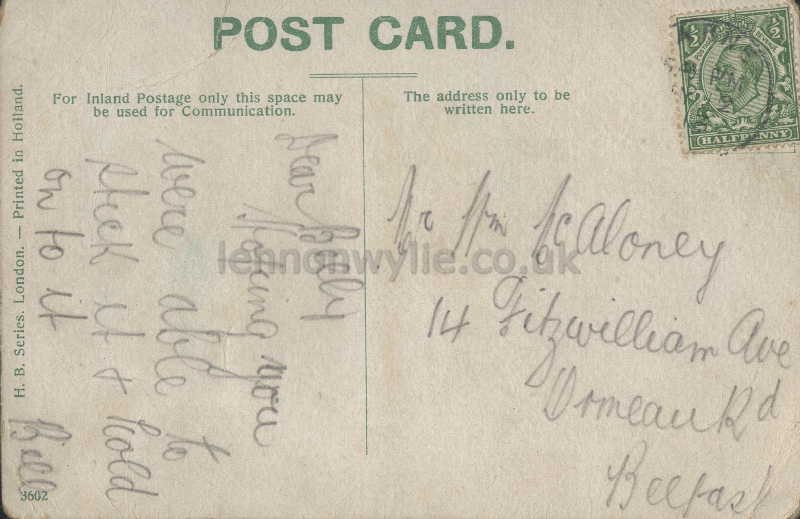 POST CARD.
For Inland Postage only this space may
be used for Communication.
The address only to be
written here.
H. B. Series. London. — Printed in Holland.
3602
HALFPENNY
½
½
Dear Billy
Hoping you
were able to
stick it & hold
on to it
Bill
Mr Wm McAloney
14 Fitzwilliam Ave
Ormeau Rd
Belfast
lennonwylie.co.uk